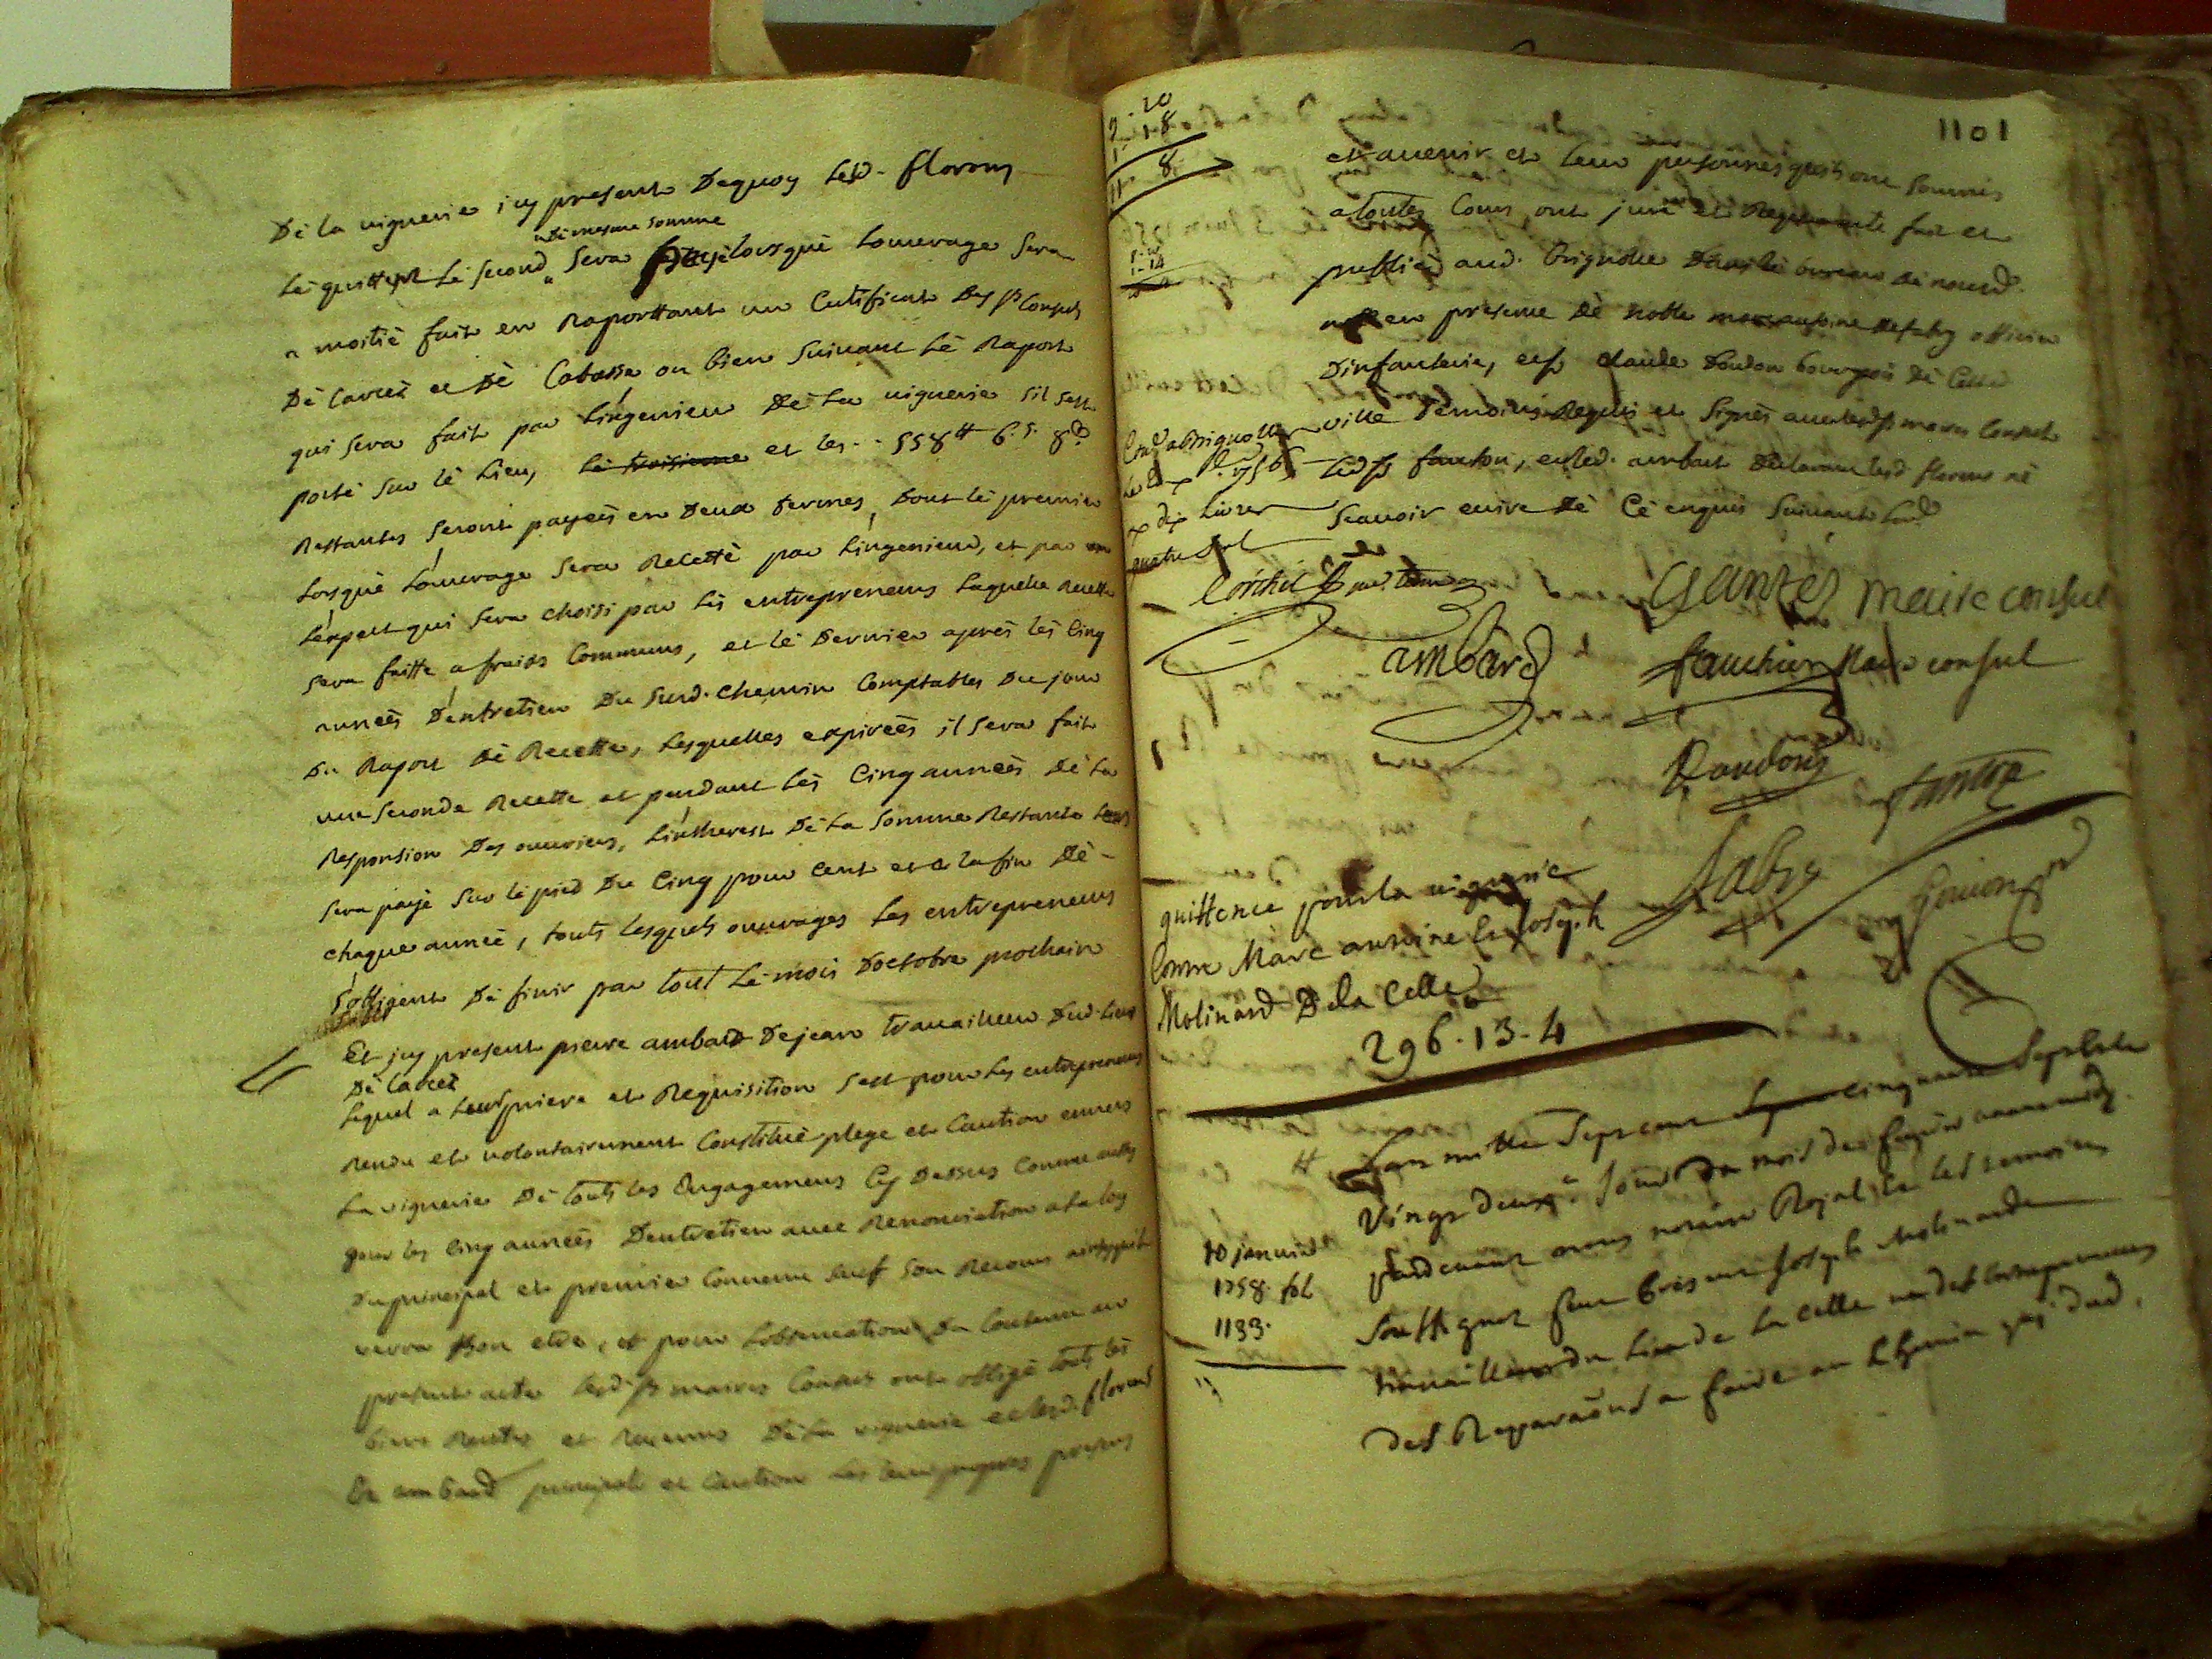 De la viguerie icy present Dequoy led. florens
De mesme somme
Le quittent Le second sera payé lorsque Louvrage sera
a moitié fait en Raporttant un Certificat Des srs Consuls
De Carces et De Cabasse ou bien suivant Le Raport
qui sera fait par Lingenieur De La viguerie sil sest
porté sur le Lieu, Le troisieme et les - - 558 tt 6 s. 8 d
Restantes seront payées en Deux termes, Dont le premier
Lorsque Louvrage sera Recetté par Lingenieur, et par
Lexpert qui sera choisi par Les entrepreneurs Laquelle Recette
sera faitte a fraids Communs, et le Dernier après Les Cinq
années Dentretien Du Susd. Chemin Comptables Du jour
Du Raport De Recette, Lesquelles expirées il sera fait
une seconde Recette et pendant Les Cinq années De La
Responsion Des ouvriers, Lintherest De La somme Restante
sera payé sur le pied Du Cinq pour Cent et a la fin De -
chaque année, touts Lesquels ouvrages Les entrepreneurs
sobligent De finir par tout Le mois Doctobre prochain
Et icy present pierre ambard Dejean travailleur Dud. Lieu
De Carces
Lequel a Leur priere et Requisition sest pour Les entrepreneurs
Rendu et volontairement Constitué plege et Caution envers
La viguerie De touts les Engagemens Cy Dessus Comme aussy
pour les Cinq années Dentretien avec Renonciation a la loy
Du principal et premier Convenu sauf son Recours ainsy quil
verra bon etre, et pour Lobservation Du Contenu au
present acte lesd. srs maires Consuls ont obligé touts les
biens Rentes et Revenus De La viguerie et lesd. florens
Et ambard principals et Caution Les leurs propres presens
1101
9 - 10
1 - 1 - 8
11 - 8
et avenir et leur personnes soumis
a toutes Cours ont juré et Requis acte fait et
publié aud. Brignolle Dans le bureau De nousd.
en presence De noble marc antoine De fabry officier
Dinfanterie, et sr claude Doudon bourgeois De Cette
ville Temoins Requis et signés avec lesd. srs maires Consuls
led. sr fauchier, et led. ambard Declarant lesd. florens ne
scavoir ecrire De Ce enquis suivant Lord.
Cont. a brignolle
1756
dix Livres
quatre sols
ambard
Gantes maire consul
fauchier Maire consul
Doudon
fabry
quittence pour la viguerie
Contre Marc antoine et Joseph
Molinard De la Celle
296 - 13 - 4
Lan mille sept cent cinquante sept et le
Vingt deux e. Jour du mois de avant midy.
pardevant nous notaire Royal et les temoins
soussignés feut present joseph Molinard
travailleur du Lieu de La Celle un des entrepreneurs
des Reparaons a faire au Chemin dud.
10 janvier
1758. fol
1133.